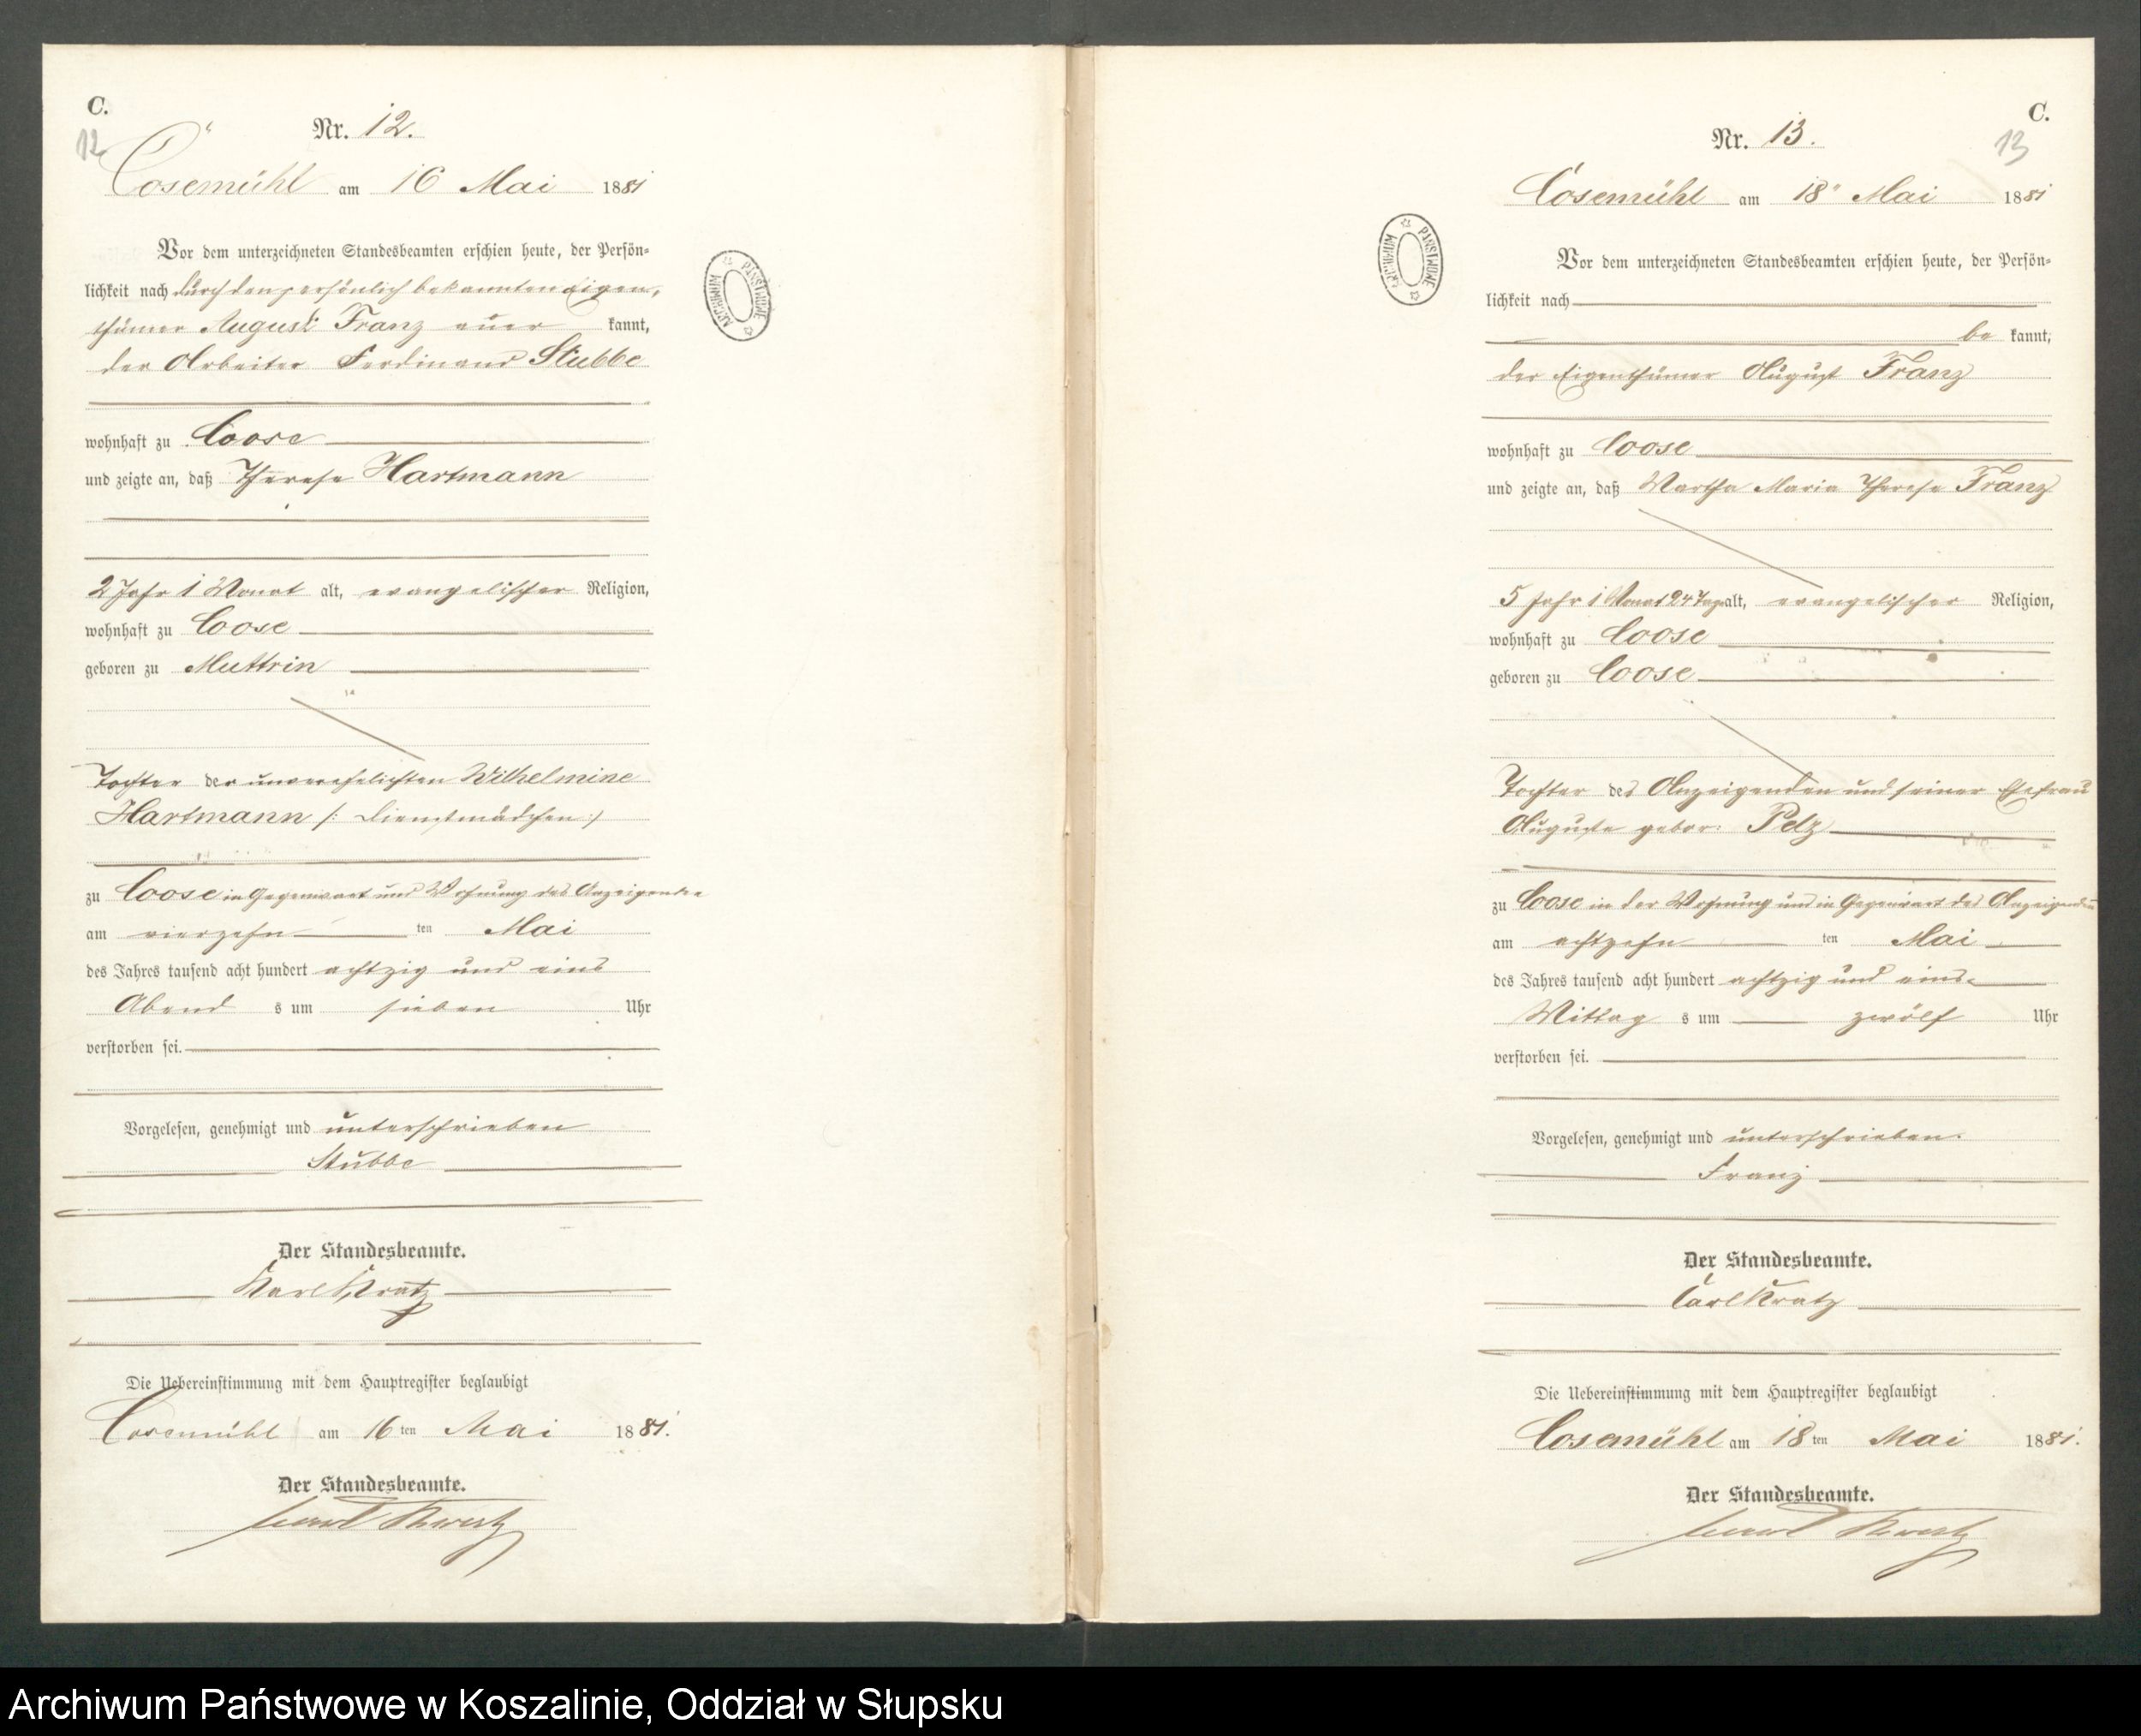 C.
12
Nr. 12.
Cosemühl am 16 Mai 1881
Vor dem unterzeichneten Standesbeamten erschien heute, der Persön-
lichkeit nach durch den persönlich bekannten Eigen-
thümer August Franz aner kannt,
der Arbeiter Ferdinand Stubbe
wohnhaft zu Coose
und zeigte an, daß Therese Hartmann
2 Jahr 1 Monat alt, evangelischer Religion,
wohnhaft zu Coose
geboren zu Muttrin
Tochter der unverehelichten Wilhelmine
Hartmann /: Dienstmädchen :/
zu Coose in Gegenwart und Wohnung des Anzeigenden
am vierzehn ten Mai
des Jahres tausend acht hundert achtzig und eins
Abend s um sieben Uhr
verstorben sei.
Vorgelesen, genehmigt und unterschrieben
Stubbe
Der Standesbeamte.
Karl Kratz
Die Uebereinstimmung mit dem Hauptregister beglaubigt
Cosemühl am 16 ten Mai 1881.
Der Standesbeamte.
Carl Kratz
ARCHIWUM PAŃSTWOWE
C.
13
Nr. 13.
Cosemühl am 18" Mai 1881
Vor dem unterzeichneten Standesbeamten erschien heute, der Persön-
lichkeit nach
be kannt,
der Eigenthümer August Franz
wohnhaft zu Coose
und zeigte an, daß Martha Maria Therese Franz
5 Jahr 1 Monat 24 Tage alt, evangelischer Religion,
wohnhaft zu Coose
geboren zu Coose
Tochter des Anzeigenden und seiner Ehefrau
Auguste gebor: Pelz
zu Coose in der Wohnung und in Gegenwart des Anzeigenden
am achtzehn ten Mai
des Jahres tausend acht hundert achtzig und eins
Mittag s um zwölf Uhr
verstorben sei.
Vorgelesen, genehmigt und unterschrieben.
Franz
Der Standesbeamte.
Carl Kratz
Die Uebereinstimmung mit dem Hauptregister beglaubigt
Cosemühl am 18 ten Mai 1881.
Der Standesbeamte.
Carl Kratz
ARCHIWUM PAŃSTWOWE
Archiwum Państwowe w Koszalinie, Oddział w Słupsku